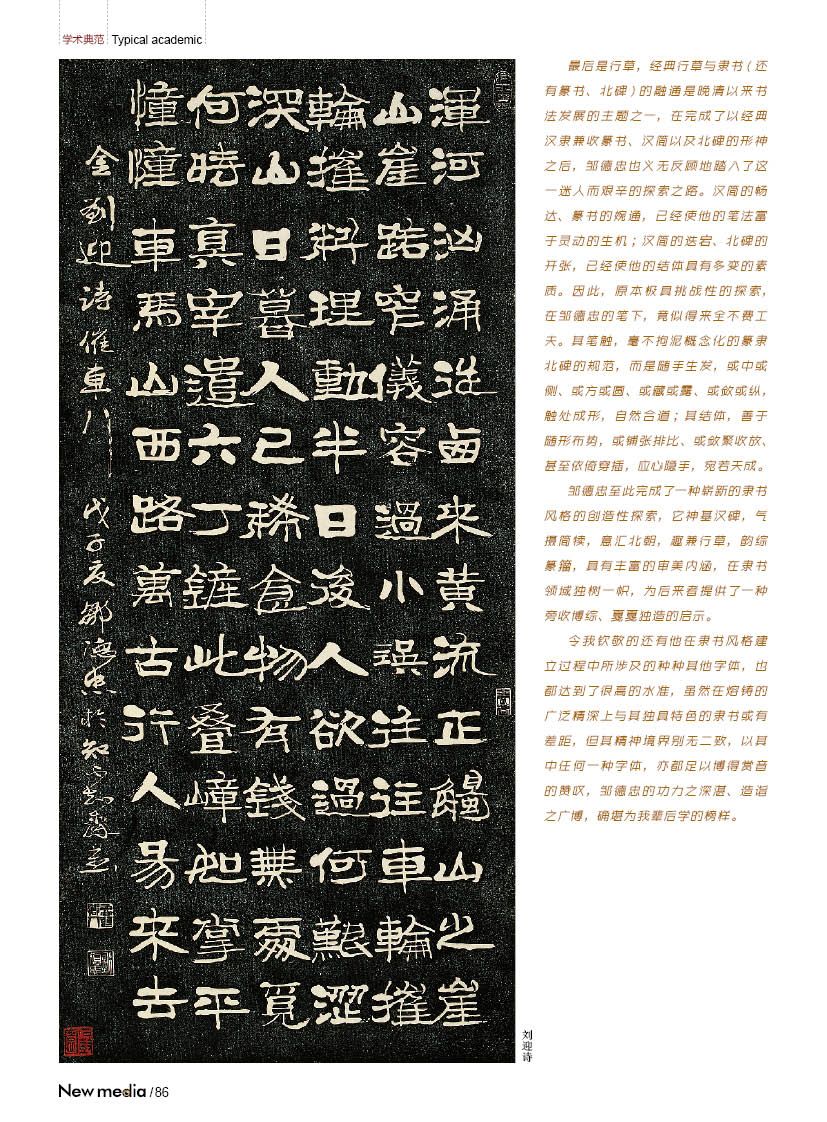 学术典范 Typical academic
渾河汹涌從西来黄流正齧山之崖
山崖路窄僅容過小誤往往車輪摧
輪摧料理動半日後人欲過何艱澀
深山日暮人已稀食物有錢無處覓
何時真宰遣六丁鏟此叠嶂如掌平
憧憧車馬山西路萬古行人易来去
金劉迎诗催車行 戊子夏鄒德忠於知不知齋
刘迎诗
最后是行草，经典行草与隶书（还
有篆书、北碑）的融通是晚清以来书
法发展的主题之一，在完成了以经典
汉隶兼收篆书、汉简以及北碑的形神
之后，邹德忠也义无反顾地踏入了这
一迷人而艰辛的探索之路。汉简的畅
达、篆书的婉通，已经使他的笔法富
于灵动的生机；汉简的迭宕、北碑的
开张，已经使他的结体具有多变的素
质。因此，原本极具挑战性的探索，
在邹德忠的笔下，竟似得来全不费工
夫。其笔触，毫不拘泥概念化的篆隶
北碑的规范，而是随手生发，或中或
侧、或方或圆、或藏或露、或敛或纵，
触处成形，自然合道；其结体，善于
随形布势，或铺张排比、或敛聚收放、
甚至依倚穿插，应心隐手，宛若天成。
邹德忠至此完成了一种崭新的隶书
风格的创造性探索，它神基汉碑，气
摄简椟，意汇北朝，趣兼行草，韵综
篆籀，具有丰富的审美内涵，在隶书
领域独树一帜，为后来者提供了一种
旁收博综、戛戛独造的启示。
令我钦敬的还有他在隶书风格建
立过程中所涉及的种种其他字体，也
都达到了很高的水准，虽然在熔铸的
广泛精深上与其独具特色的隶书或有
差距，但其精神境界别无二致，以其
中任何一种字体，亦都足以博得赏音
的赞叹，邹德忠的功力之深湛、造诣
之广博，确堪为我辈后学的榜样。
New media /86